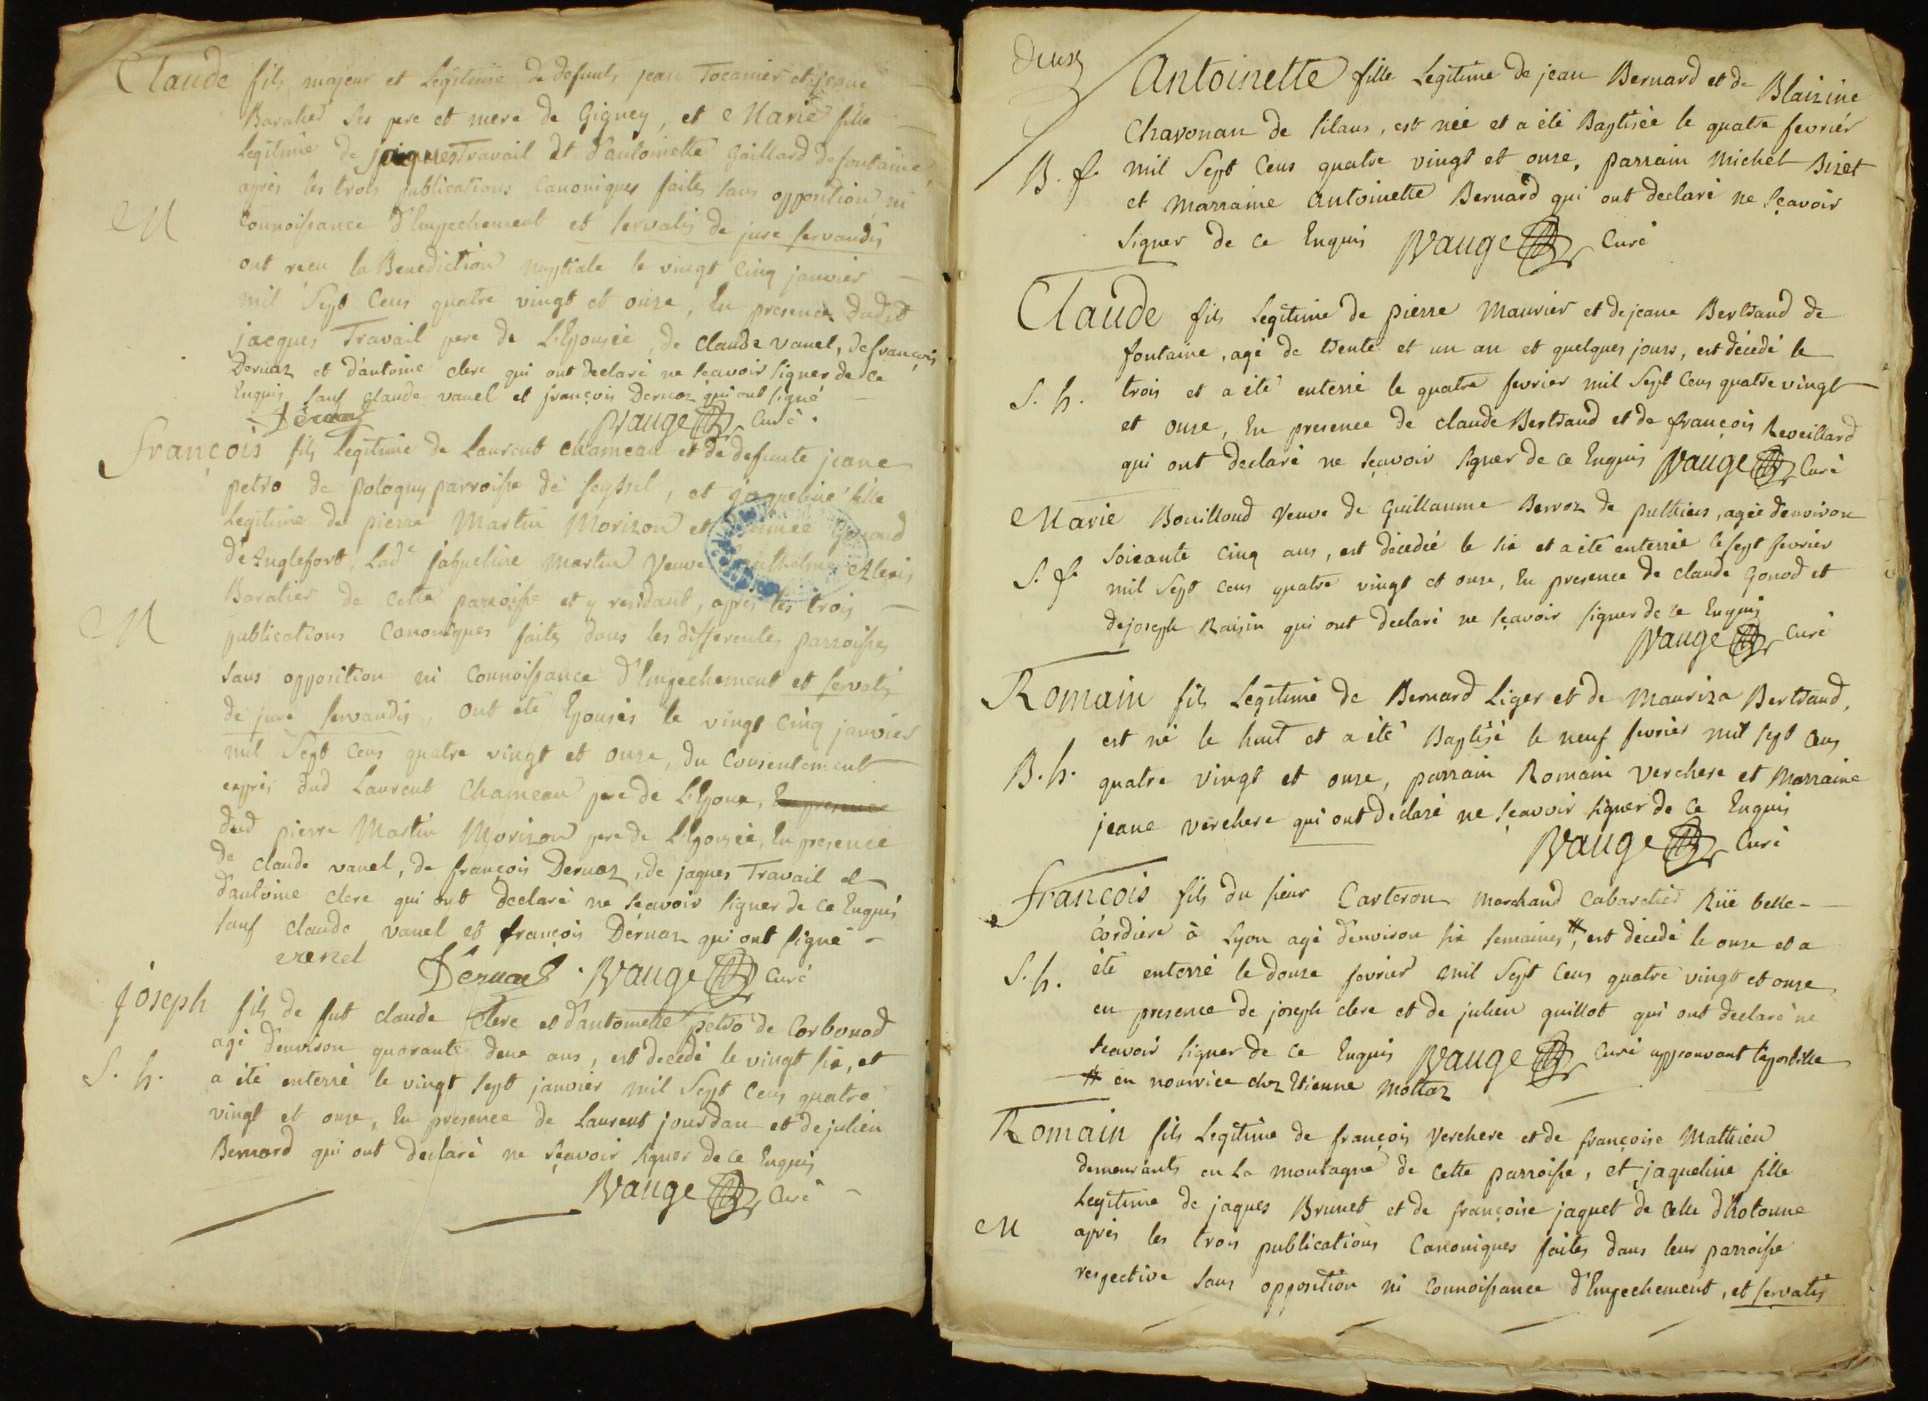 Claude fils majeur et Legitime de defunts jean Tocanier et jeane
Baralier ses pere et mere de Gigney, et Marie fille
Legitime de jaques Travail et d'antoinette Gaillard de fontaine,
après les trois publications Canoniques faites sans opposition, ni
M
Connoissance d'Empechement et servatis de jure servandis
ont reçu la Benediction nuptiale le vingt Cinq janvier
mil sept Cens quatre vingt et onze, En presence dudit
jacques Travail pere de L'Epousée, de Claude vanel, de françois
Dernaz et d'antoine clerc qui ont declaré ne sçavoir signer de ce
Enquis sauf claude vanel et françois Dernaz qui ont signé
Dernaz Wauge Curé.
françois fils Legitime de Laurent Chameau et de defunte jeane
petro de pologny parroisse de seyssel, et jaqueline fille
Legitime de pierre Martin Morizon et
d'Anglefort, Lade jaqueline Martin Veuve Alexis
Baralier de Cette parroisse et y residant, après les trois
M
publications Canoniques faites dans les differentes parroisses
sans opposition ni Connoissance d'Empechement et servatis
de jure servandis, ont été Epousés le vingt Cinq janvier
mil sept Cens quatre vingt et onze, du Consentement
exprès dud Laurent Chameau pere de L'Epoux, En presence
dud pierre Martin Morizon pere de L'Epousée, En presence
de claude vanel, de françois Dernaz, de jaques Travail et
d'antoine clerc qui ont declaré ne sçavoir signer de ce Enquis
sauf claude vanel et françois Dernaz qui ont signé
vanel Dernaz. Wauge Curé
joseph fils de fut claude Clerc et d'antoinette petro de Corbonod
agé d'environ quarante deux ans, est decedé le vingt six, et
S. h.
a été enterré le vingt sept janvier mil Sept Cens quatre
vingt et onze, En presence de Laurent jourdan et de julien
Bernard qui ont declaré ne sçavoir signer de ce Enquis
Wauge Curé
Deux
Antoinette fille Legitime de jean Bernard et de Blaizine
Chavonan de silans, est née et a été Baptisée le quatre fevrier
B. f.
mil Sept Cens quatre vingt et onze, parrain Michel Bizet
et Marraine Antoinette Bernard qui ont declaré ne sçavoir
signer de ce Enquis Wauge Curé
Claude fils Legitime de pierre Maurier et de jeane Bertrand de
fontaine, agé de trente et un an et quelques jours, est décedé le
S. h.
trois et a été enterré le quatre fevrier mil Sept Cens quatre vingt
et onze, En presence de claude Bertrand et de françois Reveillard
qui ont declaré ne sçavoir signer de ce Enquis Wauge Curé
Marie Bouilloud Veuve de Guillaume Berroz de puthieu, agée d'environ
S. f
soixante Cinq ans, est décedée le six et a été enterrée le sept fevrier
mil Sept Cens quatre vingt et onze, En presence de claude Gonod et
de joseph Raisin qui ont declaré ne sçavoir signer de ce Enquis
Wauge Curé
Romain fils Legitime de Bernard Liger et de Mauriza Bertrand,
est né le huit et a été Baptisé le neuf fevrier mil sept Cens
B. h.
quatre vingt et onze, parrain Romain Verchere et Marraine
jeane verchere qui ont declaré ne sçavoir signer de ce Enquis
Wauge Curé
françois fils du sieur Carteron Marchand Cabaretier Rüe belle-
Cordiere à Lyon agé d'environ six semaines #, est décedé le onze et a
S. h.
été enterré le douze fevrier mil Sept Cens quatre vingt et onze
en presence de joseph clerc et de julien guillot qui ont declaré ne
sçavoir signer de ce Enquis Wauge Curé approuvant l'apostille
# en nourrice chez Etienne Mottaz
Romain fils Legitime de françois Verchere et de françoise Mathieu
demeurants en La montagne de Cette parroisse, et jaqueline fille
Legitime de jaques Brunet et de françoise jaquet de Celle d'hotonne
M
après les trois publications Canoniques faites dans leur parroisse
respective sans opposition ni Connoissance d'Empechement, et servatis